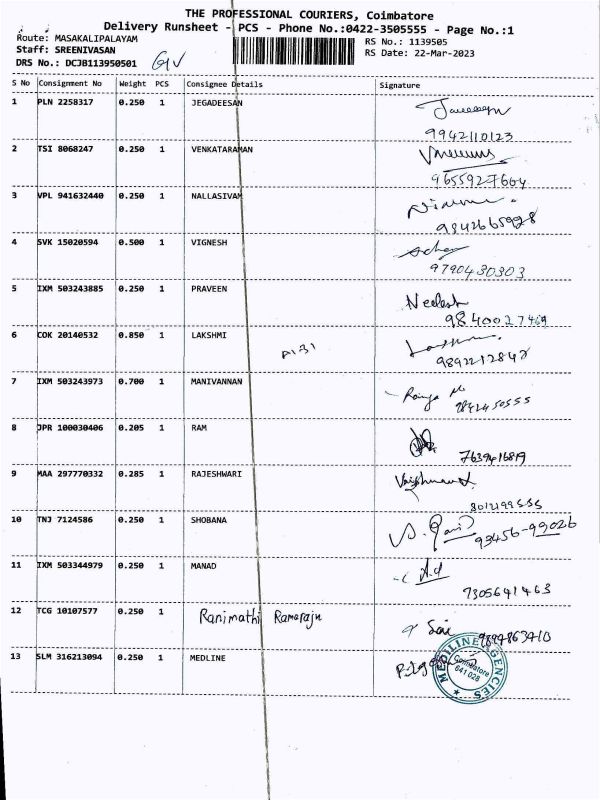 THE PROFESSIONAL COURIERS, Coimbatore
Delivery Runsheet - PCS - Phone No.:0422-3505555 - Page No.:1
Route: MASAKALIPALAYAM RS No.: 1139505
Staff: SREENIVASAN RS Date: 22-Mar-2023
DRS No.: DCJB113950501
S No Consignment No Weight PCS Consignee Details Signature
1 PLN 2258317 0.250 1 JEGADEESAN
9942110123
2 TSI 8068247 0.250 1 VENKATARAMAN
9655927664
3 VPL 941632440 0.250 1 NALLASIVAM
9842665928
4 SVK 15020594 0.500 1 VIGNESH
9790430303
5 IXM 503243885 0.250 1 PRAVEEN Neelesh
9840027469
6 COK 20140532 0.850 1 LAKSHMI
A131 9892212842
7 IXM 503243973 0.700 1 MANIVANNAN Ranga
9842450555
8 JPR 100030406 0.205 1 RAM
7639416819
9 MAA 297770332 0.285 1 RAJESHWARI
8012199555
10 TNJ 7124586 0.250 1 SHOBANA
99456-99026
11 IXM 503344979 0.250 1 MANAD
7305641463
12 TCG 10107577 0.250 1 Ranimathi Ramaraju
Sai
13 SLM 316213094 0.250 1 MEDLINE
MEDILINE AGENCIES
Coimbatore
641 028